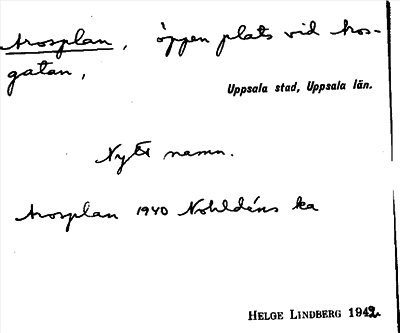 Arosplan, öppen plats vid Aros-
gatan,
Uppsala stad, Uppsala län.
Nytt namn.
Arosplan 1940 Nohldéns ka
HELGE LINDBERG 1942